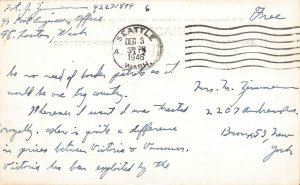 Pvt. J. Zimmerman 42271894
Post Engineer Office
Ft. Lawton, Wash
6
Free
SEATTLE
DEC 3
PM
1946
WASH.
be no need of border patrols as it
would be one big country.
Wherever I went I was treated
royally. There is quite a difference
in prices between Victoria & Vancouver.
Victoria has been exploited by the
Mrs. M. Zimmerman
2207 Andrews Ave.
Bronx 53, New
York